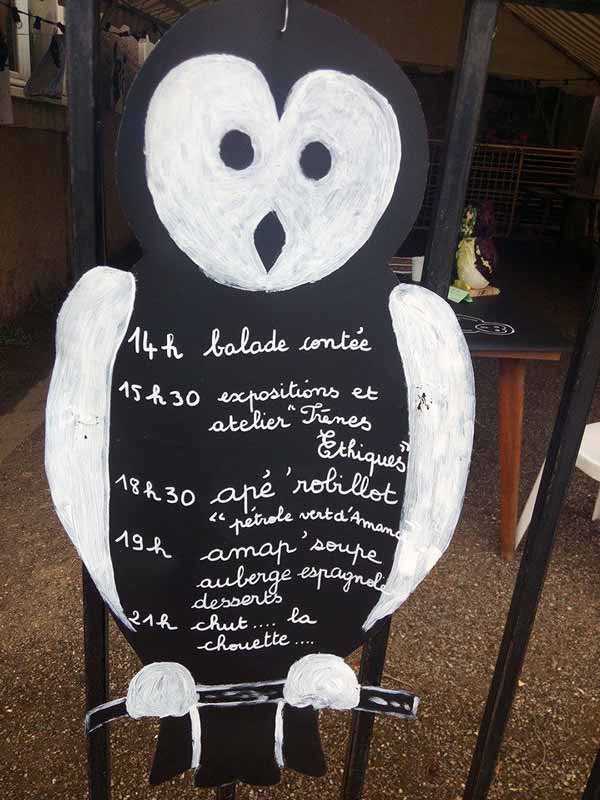 14h balade contée
15h30 expositions et
atelier "Trênes
Ethiques"
18h30 apé'robillot
"pétrole vert d'Amanc
19h amap'soupe
auberge espagnole
desserts
21h chut.... la
chouette....